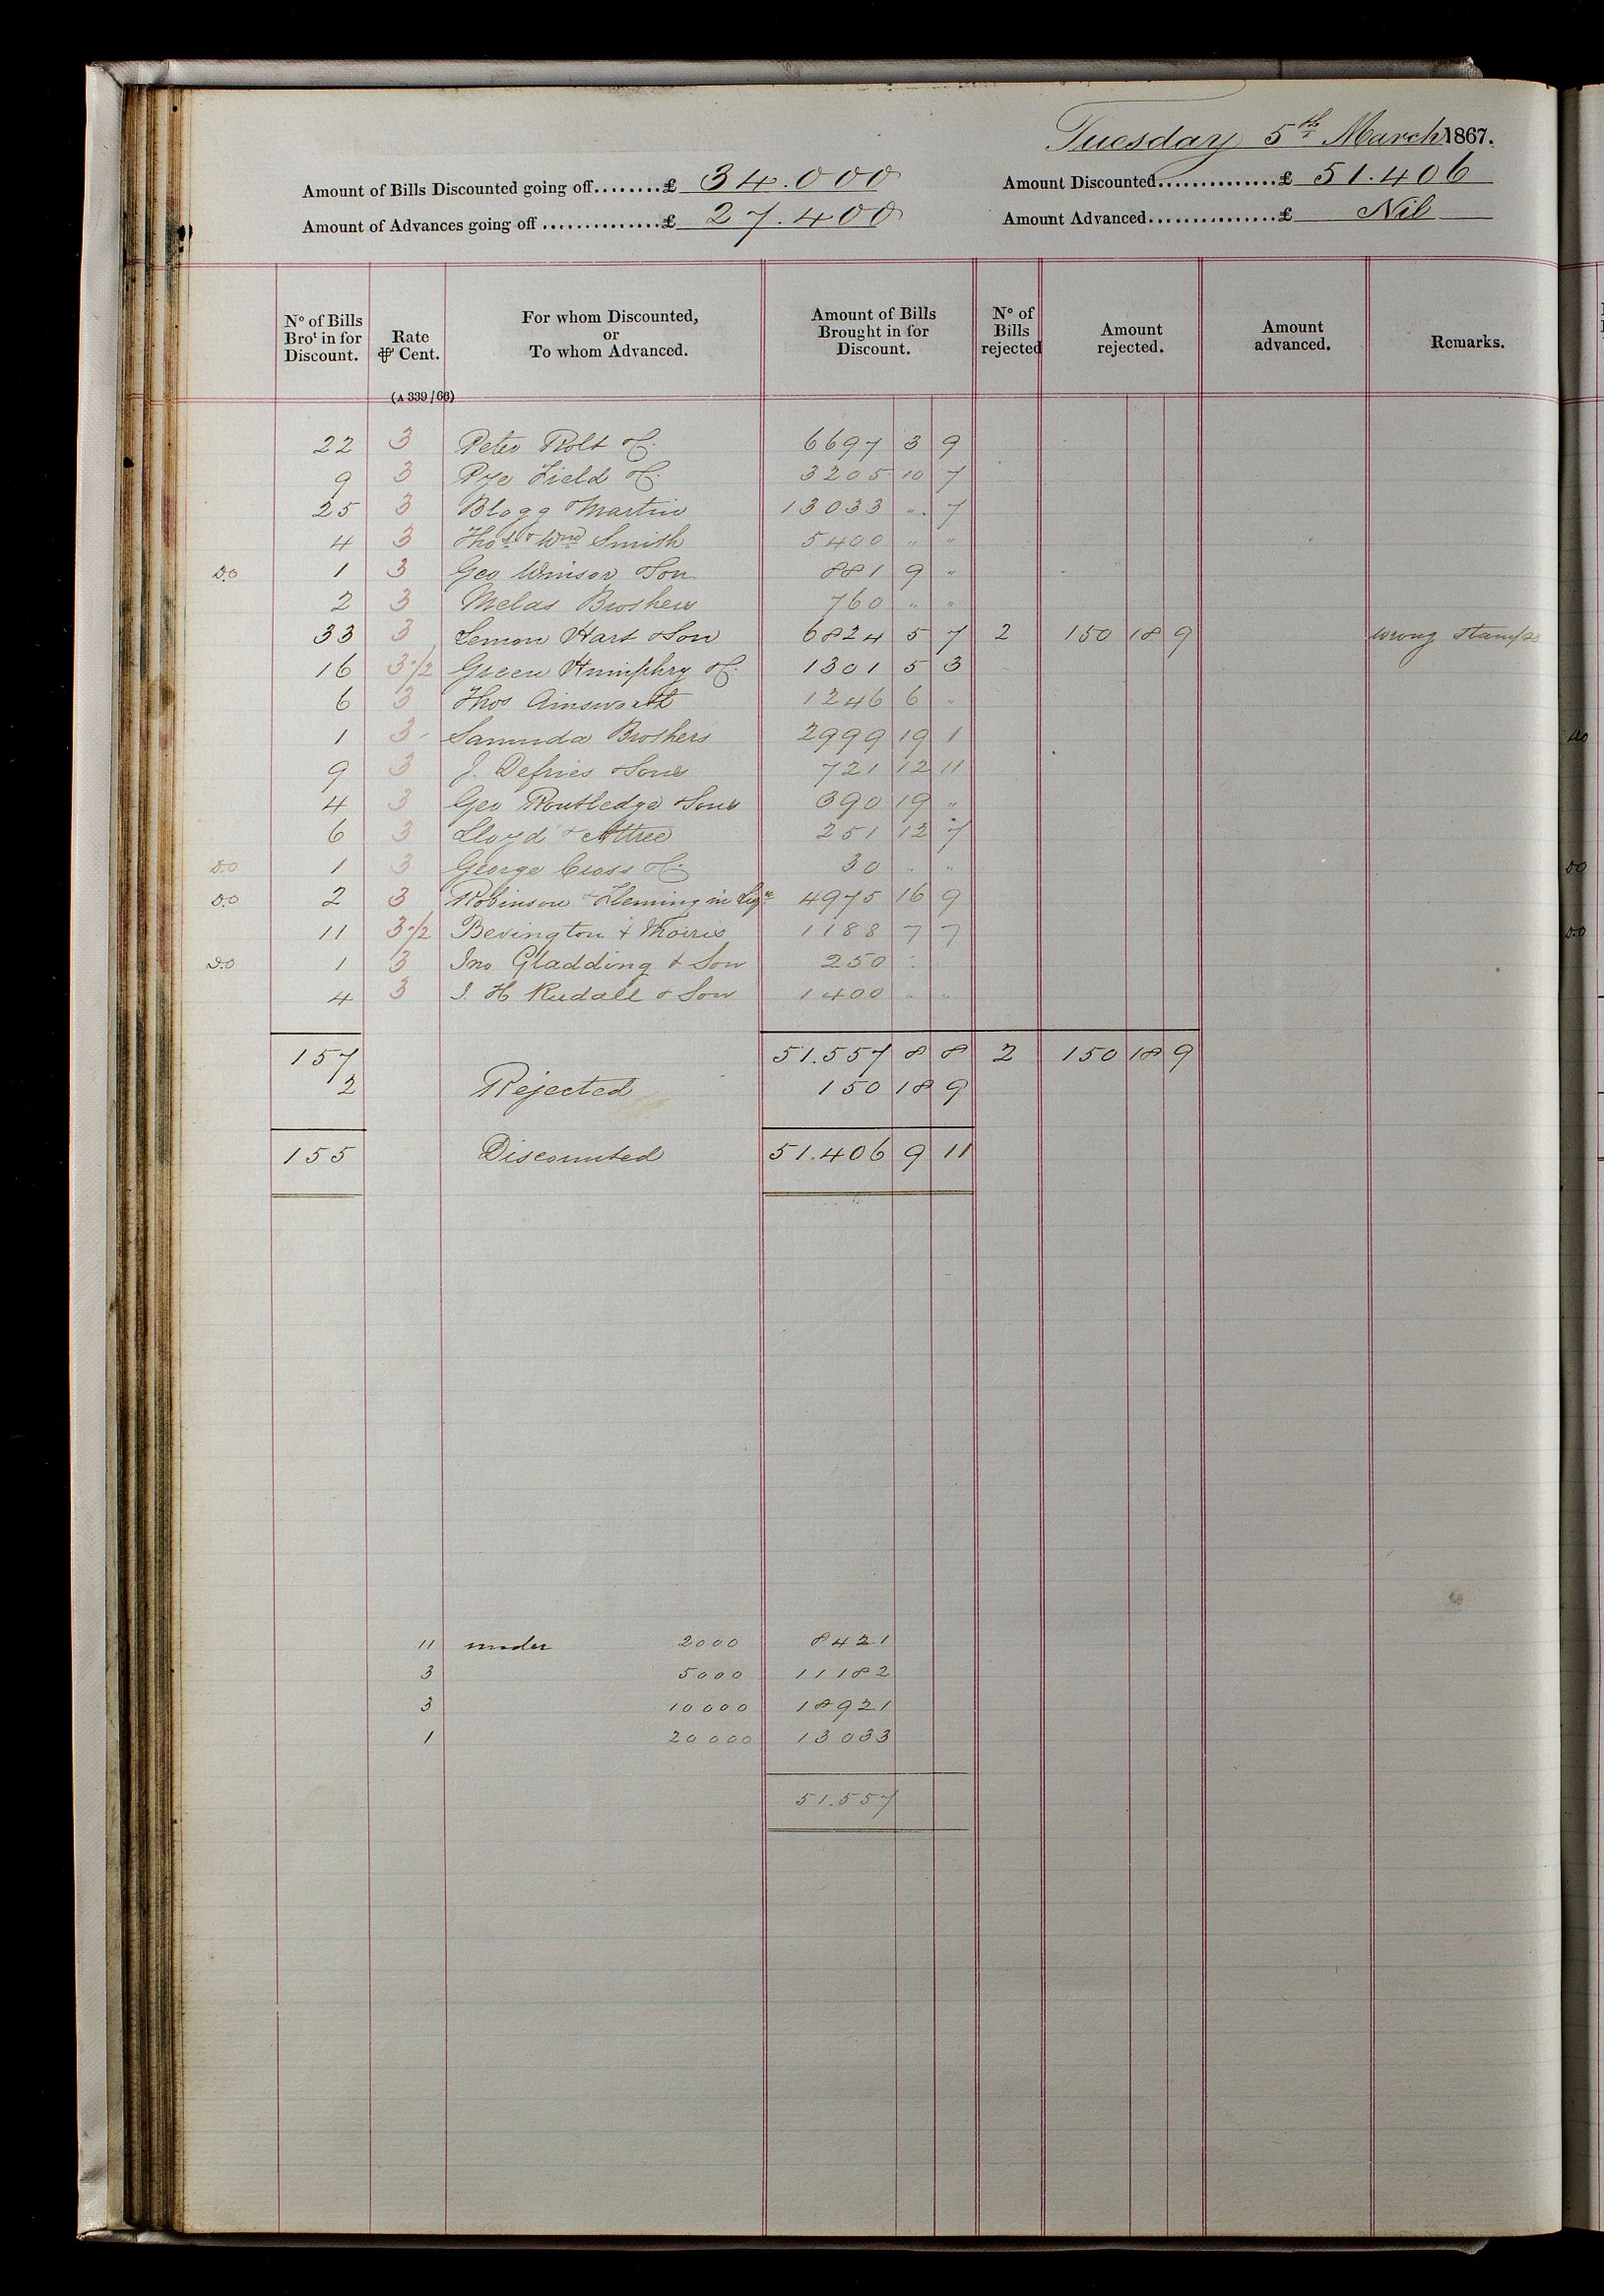 Tuesday 5th March 1867.
Amount of Bills Discounted going off........£ 34.000 Amount Discounted..............£ 51.406
Amount of Advances going off..............£ 27.400 Amount Advanced...............£ Nil
No of Bills Brot in for Discount. Rate ⅌ Cent. For whom Discounted, or To whom Advanced. Amount of Bills Brought in for Discount. No of Bills rejected Amount rejected. Amount advanced. Remarks.
(A 339/66)
22 3 Peter Rolt & C. 6697 3 9
9 3 Pye Field & C. 3205 10 7
25 3 Blogg & Martin 13033 " 7
4 3 Thos & Wm Smith 5400 " "
Do 1 3 Geo Winsor & Son 881 9 "
2 3 Melas Brothers 760 " "
33 3 Lemon Hart & Son 6824 5 7 2 150 18 9 wrong stamps
16 3·/2 Green Humphry & C. 1301 5 3
6 3 Thos Ainsworth 1246 6 "
1 3 Samuda Brothers 2999 19 1
9 3 J. Defries & Sons 721 12 11
4 3 Geo Routledge & Sons 390 19 "
6 3 Lloyd & Attree 251 12 7
Do 1 3 George Cross & C. 30 " "
Do 2 3 Robinson & Fleming in Liqn 4975 16 9
11 3·/2 Bevington & Morris 1188 7 7
Do 1 3 Jno Gladding & Son 250 :
4 3 J. H Rudall & Son 1400 " "
157 51.557 8 8 2 150 18 9
2 Rejected 150 18 9
155 Discounted 51.406 9 11
11 under 2000 8421
3 5000 11182
3 10000 18921
1 20000 13033
51.557